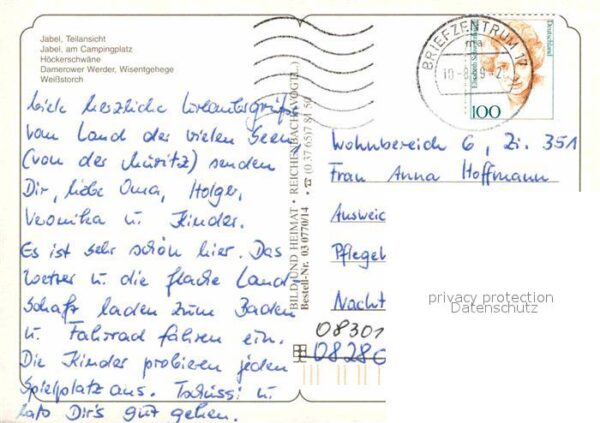 Jabel, Teilansicht
Jabel, am Campingplatz
Höckerschwäne
Damerower Werder, Wisentgehege
Weißstorch
Viele herzliche Urlaubsgrüße
vom Land der vielen Seen
(von der Müritz) senden
Dir, liebe Oma, Holger,
Veronika u. Kinder.
Es ist sehr schön hier. Das
Wetter u. die flache Land
schaft laden zum Baden
u. Fahrrad fahren ein.
Die Kinder probieren jeden
Spielplatz aus. Tschüssi u.
laß Dir's gut gehen.
BILD UND HEIMAT • REICHENBACH (VOGTL.)
Bestell-Nr. 03 0770/14 • ☎ (0 37 65) 7 81 50
BRIEFZENTRUM 17
ma
Deutschland
100
Wohnbereich 6, Zi. 351
Frau Anna Hoffmann
Ausweic
Pflegeh
Nacht
08301
0828
privacy protection
Datenschutz